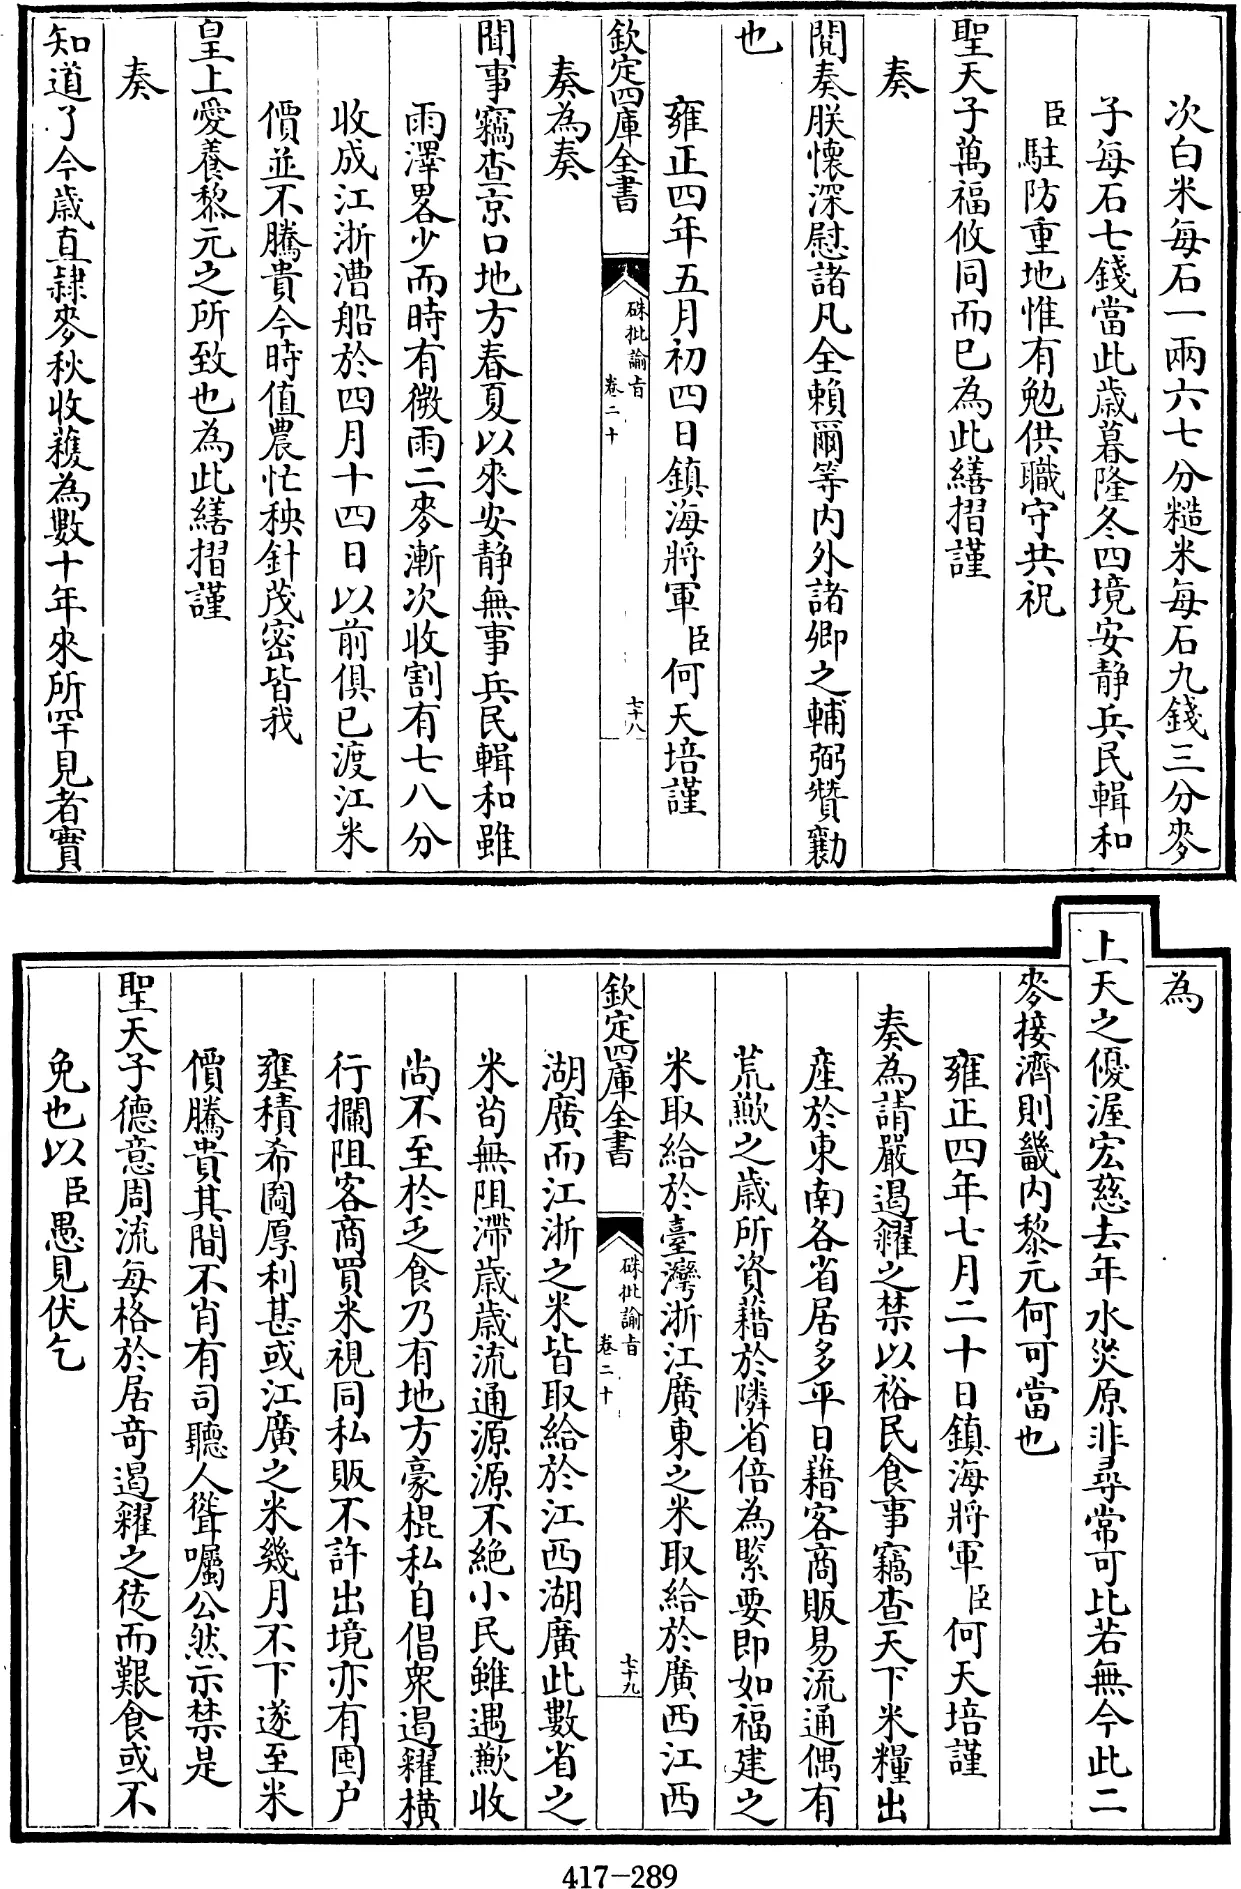 次白米每石一兩六七分糙米每石九錢三分麥
子每石七錢當此歲暮隆冬四境安靜兵民輯和
臣駐防重地惟有勉供職守共祝
聖天子萬福攸同而已為此繕摺謹
奏
閱奏朕懷深慰諸凡全賴爾等内外諸卿之輔弼贊勷
也
雍正四年五月初四日鎮海將軍臣何天培謹
欽定四庫全書
硃批諭旨
卷二十
七十八
奏為奏
聞事竊查京口地方春夏以來安靜無事兵民輯和雖
雨澤畧少而時有微雨二麥漸次收割有七八分
收成江浙漕船於四月十四日以前俱已渡江米
價並不騰貴今時值農忙秧針茂密皆我
皇上愛養黎元之所致也為此繕摺謹
奏
知道了今歲直隸麥秋收穫為數十年來所罕見者實
為
上天之優渥宏慈去年水災原非尋常可比若無今此二
麥接濟則畿内黎元何可當也
雍正四年七月二十日鎮海將軍臣何天培謹
奏為請嚴遏糴之禁以裕民食事竊查天下米糧出
產於東南各省居多平日藉客商販易流通偶有
荒歉之歲所資藉於隣省倍為緊要即如福建之
米取給於臺灣浙江廣東之米取給於廣西江西
欽定四庫全書
硃批諭旨
卷二十
七十九
湖廣而江浙之米皆取給於江西湖廣此數省之
米苟無阻滯歲歲流通源源不絶小民雖遇歉收
尚不至於乏食乃有地方豪棍私自倡衆遏糴横
行攔阻客商買米視同私販不許出境亦有囤户
壅積希圖厚利甚或江廣之米幾月不下遂至米
價騰貴其間不肖有司聽人聳囑公然示禁是
聖天子德意周流每格於居奇遏糴之徒而艱食或不
免也以臣愚見伏乞
417-289